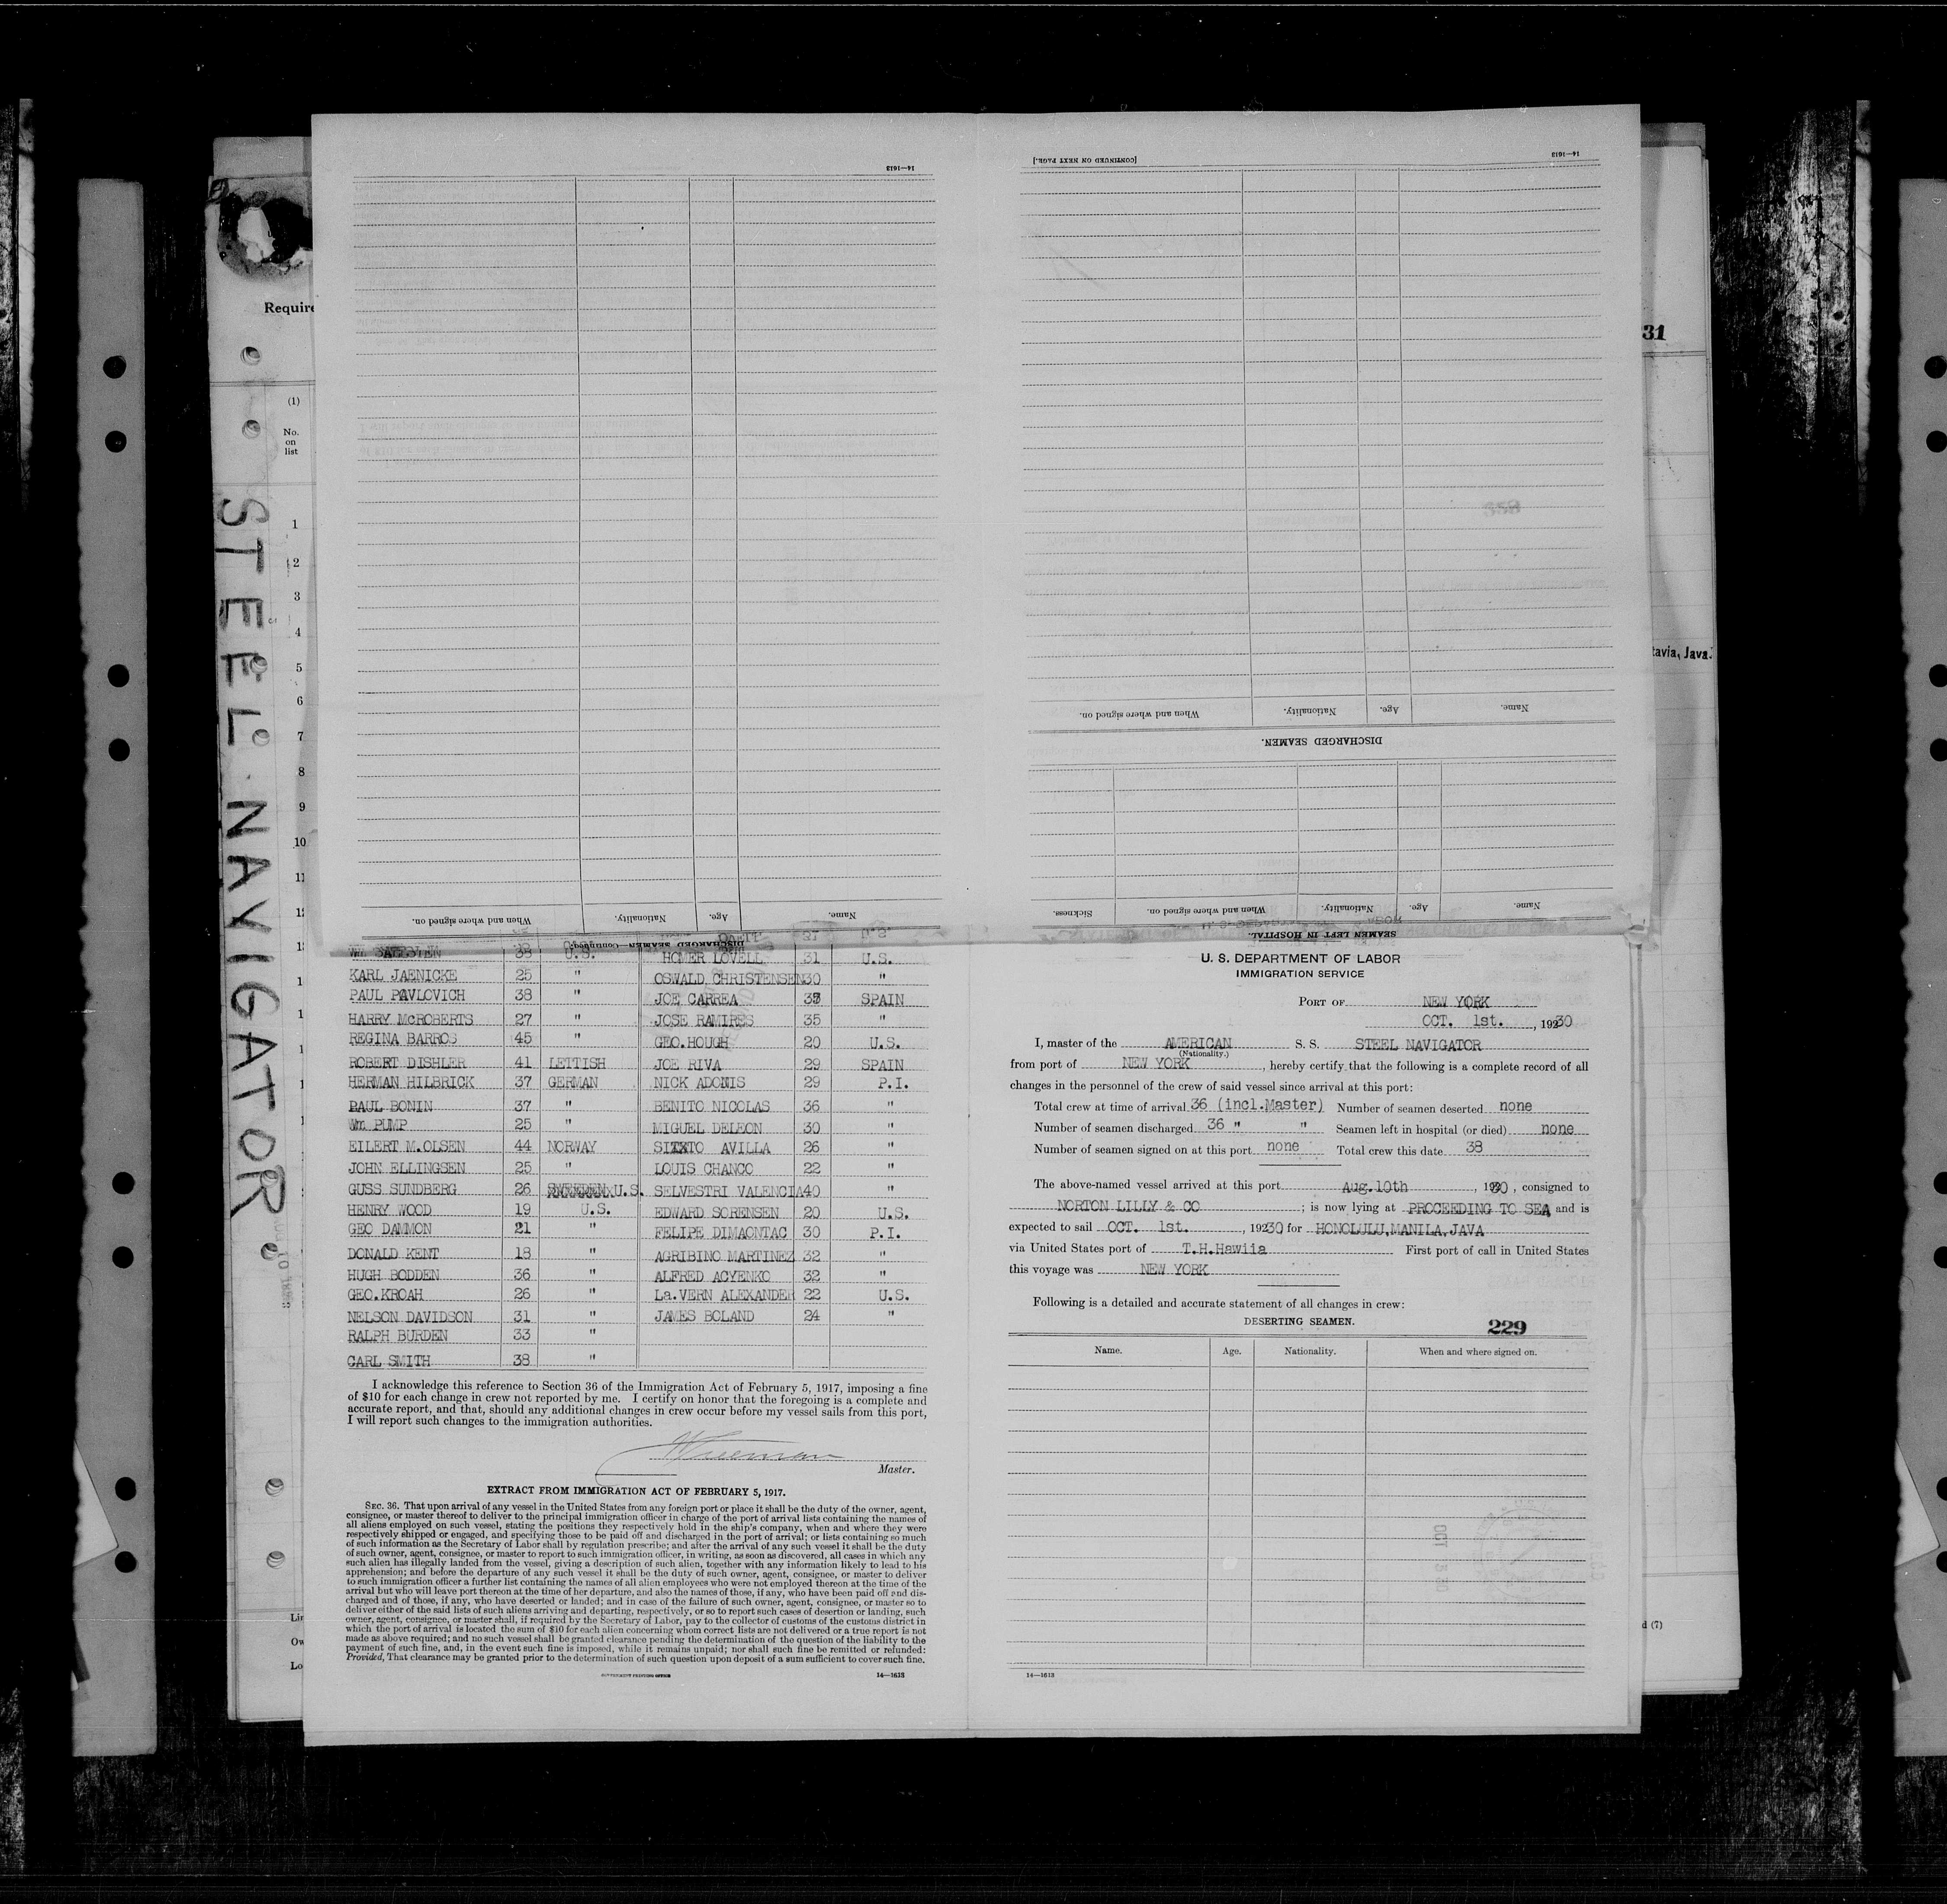 14—1613
14—1613
[CONTINUED ON NEXT PAGE.]
Require
31
(1)
No.
on
list
1
2
3
4
5
6
7
8
9
10
11
STEEL NAVIGATOR
tavia, Java.
358
When and where signed on.
Nationality.
Age.
Name.
DISCHARGED SEAMEN.
Sickness.
When and where signed on.
Nationality.
Age.
Name.
SEAMEN LEFT IN HOSPITAL.
When and where signed on.
Nationality.
Age.
Name.
DISCHARGED SEAMEN—Continued.
38 U.S. HOMER LOVELL 31 U.S.
KARL JAENICKE 25 " OSWALD CHRISTENSEN 30 "
PAUL PAVLOVICH 38 " JOE CARREA SPAIN
HARRY McROBERTS 27 " JOSE RAMIRES 35 "
REGINA BARROS 45 " GEO.HOUGH 20 U.S.
ROBERT DISHLER 41 LETTISH JOE RIVA 29 SPAIN
HERMAN HILBRICK 37 GERMAN NICK ADONIS 29 P.I.
PAUL BONIN 37 " BENITO NICOLAS 36 "
Wm PUMP 25 " MIGUEL DELEON 30 "
EILERT M.OLSEN 44 NORWAY AVILLA 26 "
JOHN ELLINGSEN 25 " LOUIS CHANCO 22 "
GUSS SUNDBERG 26 U.S. SELVESTRI VALENCIA 40 "
HENRY WOOD 19 U.S. EDWARD SORENSEN 20 U.S.
GEO DAMMON 21 " FELIPE DIMAONTAC 30 P.I.
DONALD KENT 18 " AGRIBINO MARTINEZ 32 "
HUGH BODDEN 36 " ALFRED ACYENKO 32 "
GEO.KROAH 26 " La.VERN ALEXANDER 22 U.S.
NELSON DAVIDSON 31 " JAMES BOLAND 24 "
RALPH BURDEN 33 "
CARL SMITH 38 "
I acknowledge this reference to Section 36 of the Immigration Act of February 5, 1917, imposing a fine
of $10 for each change in crew not reported by me. I certify on honor that the foregoing is a complete and
accurate report, and that, should any additional changes in crew occur before my vessel sails from this port,
I will report such changes to the immigration authorities.
Master.
EXTRACT FROM IMMIGRATION ACT OF FEBRUARY 5, 1917.
SEC. 36. That upon arrival of any vessel in the United States from any foreign port or place it shall be the duty of the owner, agent,
consignee, or master thereof to deliver to the principal immigration officer in charge of the port of arrival lists containing the names of
all aliens employed on such vessel, stating the positions they respectively hold in the ship's company, when and where they were
respectively shipped or engaged, and specifying those to be paid off and discharged in the port of arrival; or lists containing so much
of such information as the Secretary of Labor shall by regulation prescribe; and after the arrival of any such vessel it shall be the duty
of such owner, agent, consignee, or master to report to such immigration officer, in writing, as soon as discovered, all cases in which any
such alien has illegally landed from the vessel, giving a description of such alien, together with any information likely to lead to his
apprehension; and before the departure of any such vessel it shall be the duty of such owner, agent, consignee, or master to deliver
to such immigration officer a further list containing the names of all alien employees who were not employed thereon at the time of the
arrival but who will leave port thereon at the time of her departure, and also the names of those, if any, who have been paid off and dis-
charged and of those, if any, who have deserted or landed; and in case of the failure of such owner, agent, consignee, or master so to
deliver either of the said lists of such aliens arriving and departing, respectively, or so to report such cases of desertion or landing, such
owner, agent, consignee, or master shall, if required by the Secretary of Labor, pay to the collector of customs of the customs district in
which the port of arrival is located the sum of $10 for each alien concerning whom correct lists are not delivered or a true report is not
made as above required; and no such vessel shall be granted clearance pending the determination of the question of the liability to the
payment of such fine, and, in the event such fine is imposed, while it remains unpaid; nor shall such fine be remitted or refunded:
Provided, That clearance may be granted prior to the determination of such question upon deposit of a sum sufficient to cover such fine.
GOVERNMENT PRINTING OFFICE 14—1613
U. S. DEPARTMENT OF LABOR
IMMIGRATION SERVICE
PORT OF NEW YORK
OCT. 1st., 19230
I, master of the AMERICAN S. S. STEEL NAVIGATOR
(Nationality.)
from port of NEW YORK, hereby certify that the following is a complete record of all
changes in the personnel of the crew of said vessel since arrival at this port:
Total crew at time of arrival 36 (incl.Master) Number of seamen deserted none
Number of seamen discharged 36 " " Seamen left in hospital (or died) none
Number of seamen signed on at this port none Total crew this date 38
The above-named vessel arrived at this port Aug.10th, 1930, consigned to
NORTON LILLY & CO; is now lying at PROCEEDING TO SEA and is
expected to sail OCT. 1st., 19230 for HONOLULU,MANILA,JAVA
via United States port of T.H.Hawiia First port of call in United States
this voyage was NEW YORK
Following is a detailed and accurate statement of all changes in crew:
DESERTING SEAMEN. 229
Name. Age. Nationality. When and where signed on.
14—1613
d (7)
Lin
Ow
Lo